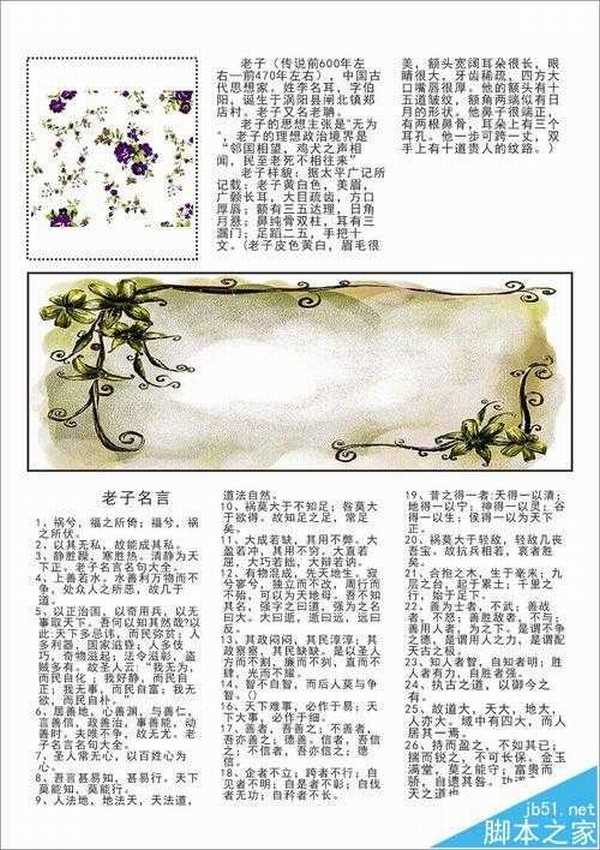 老子（传说前600年左
右—前470年左右），中国古
代思想家。姓李名耳，字伯
阳，诞生于涡阳县闸北镇郑
店村。老子又名老聃。
老子的思想主张是"无为
"，老子的理想政治境界是
“邻国相望，鸡犬之声相
闻，民至老死不相往来”
老子样貌：据太平广记所
记载：老子黄白色，美眉，
广颡长耳，大目疏齿，方口
厚唇；额有三五达理，日角
月悬；鼻纯骨双柱，耳有三
漏门；足蹈二五，手把十
文。(老子皮色黄白，眉毛很
美，额头宽阔耳朵很长，眼
睛很大，牙齿稀疏，四方大
口嘴唇很厚。他的额头有十
五道皱纹，额角两端似有日
月的形状。他鼻子很端正，
有两根鼻骨，耳朵上有三个
耳孔。他一步可跨一丈，双
手上有十道贵人的纹路。）
老子名言
1、祸兮，福之所倚；福兮，祸
之所伏。
2、以其无私，故能成其私。
3、静胜躁，寒胜热。清静为天
下正。老子名言名句大全。
4、上善若水。水善利万物而不
争，处众人之所恶，故几于
道。
5、以正治国，以奇用兵，以无
事取天下。吾何以知其然哉?以
此:天下多忌讳，而民弥贫；人
多利器，国家滋昏；人多伎
巧，奇物滋起；法令滋彰，盗
贼多有。故圣人云：“我无为，
而民自化；我好静，而民自
正；我无事，而民自富；我无
欲，而民自朴。”
6、居善地，心善渊，与善仁，
言善信，政善治，事善能，动
善时。夫唯不争，故无尤。老
子名言名句大全。
7、圣人常无心，以百姓心为
心。
8、吾言甚易知，甚易行。天下
莫能知，莫能行。
9、人法地，地法天，天法道，
道法自然。
10、祸莫大于不知足；咎莫大
于欲得。故知足之足，常足
矣。
11、大成若缺，其用不弊。大
盈若冲，其用不穷。大直若
屈，大巧若拙，大辩若讷。
12、有物混成，先天地生。寂
兮寥兮，独立而不改，周行而
不殆，可以为天地母。吾不知
其名，强字之曰道，强为之名
曰大。大曰逝，逝曰远，远曰
反。
13、其政闷闷，其民淳淳；其
政察察，其民缺缺。是以圣人
方而不割，廉而不刿，直而不
肆，光而不耀。
14、智不自智，而后人莫与争
智。()
16、天下难事，必作于易；天
下大事，必作于细。
17、善者，吾善之；不善者，
吾亦善之；德善。信者，吾信
之；不信者，吾亦信之；德
信。
18、企者不立；跨者不行；自
见者不明；自是者不彰；自伐
者无功；自矜者不长。
19、昔之得一者:天得一以清；
地得一以宁；神得一以灵；谷
得一以生；侯得一以为天下
正。
20、祸莫大于轻敌，轻敌几丧
吾宝。故抗兵相若，哀者胜
矣。
21、合抱之木，生于毫末；九
层之台，起于累土；千里之
行，始于足下。
22、善为士者，不武；善战
者，不怒；善胜敌者，不与；
善用人者，为之下。是谓不争
之德，是谓用人之力，是谓配
天古之极。
23、知人者智，自知者明；胜
人者有力，自胜者强。
24、执古之道，以御今之
有。
25、故道大，天大，地大，
人亦大。域中有四大，而人
居其一焉。
26、持而盈之，不如其已；
揣而锐之，不可长保。金玉
满堂，莫之能守；富贵而
骄，自遗其咎。
天之道也
jb51.net
脚本之家